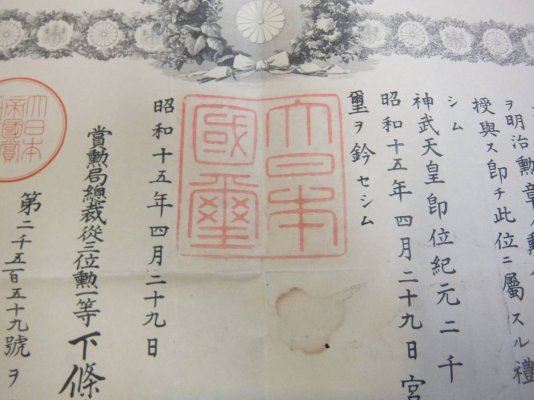 ヲ明治勲章ノ勲
授與ス即チ此位ニ屬スル禮
シム
神武天皇即位紀元二千
昭和十五年四月二十九日宮
璽ヲ鈐セシム
大日本
國璽
昭和十五年四月二十九日
賞勲局總裁從三位勲一等下條
大日本
第二千五百五十九號ヲ